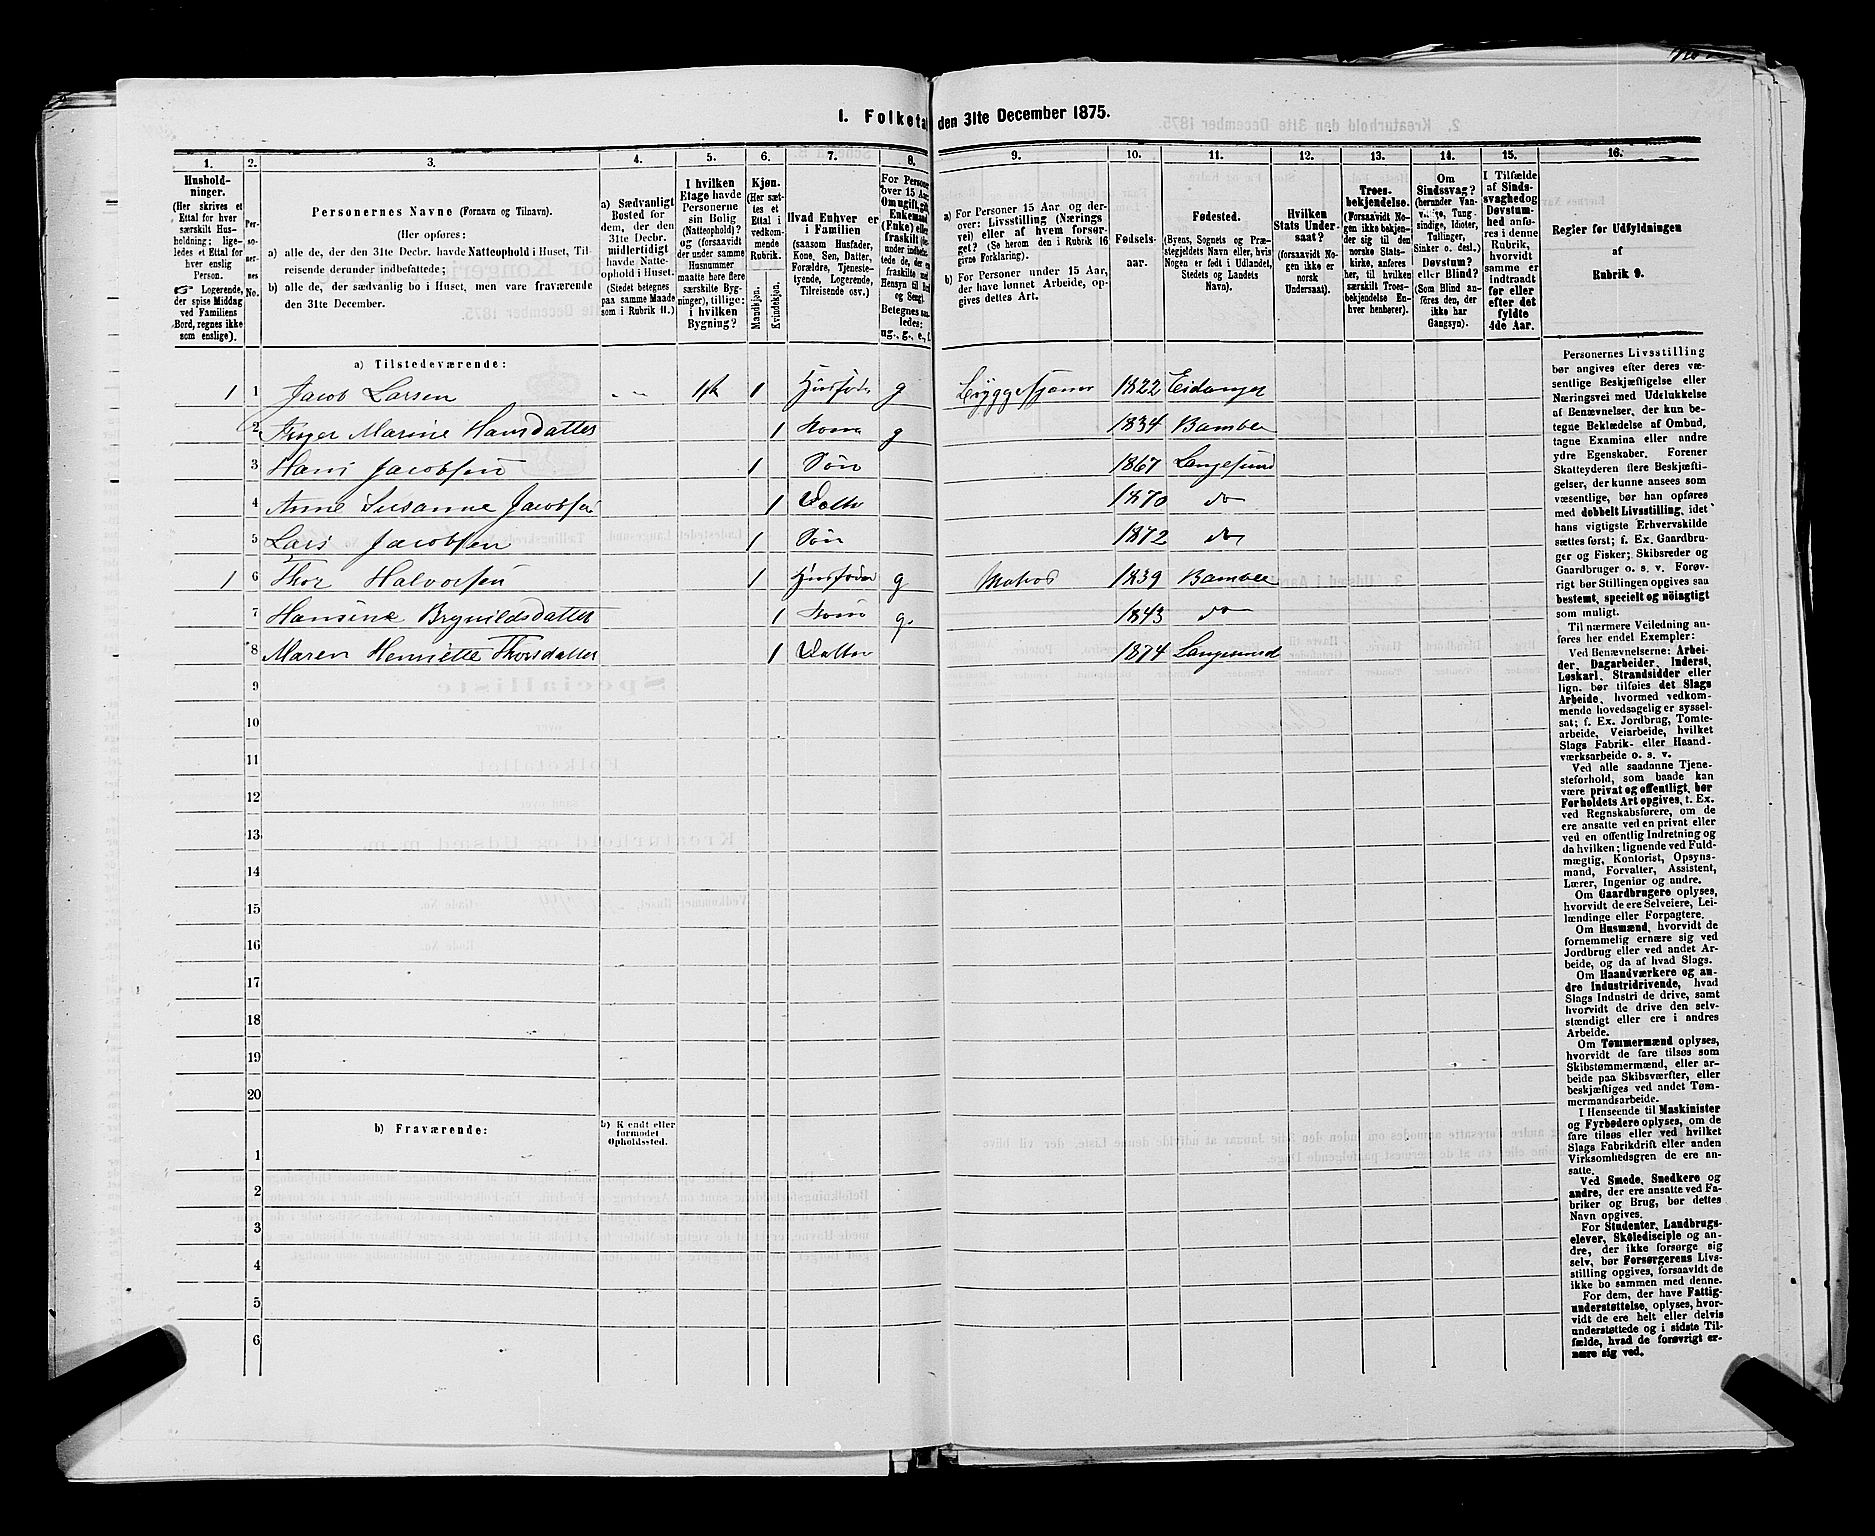 1. Folketal den 31te December 1875.
1. 2. 3. 4. 5. 6. 7. 8. 9. 10. 11. 12. 13. 14. 15. 16.
Hushold-
ninger.
(Her skrives et
Ettal for hver
særskilt Hus-
holdning; lige-
ledes et Ettal for
hver enslig
Person.
☞ Logerende,
der spise Middag
ved Familiens
Bord, regnes ikke
som enslige).
Per-
so-
ner-
nes
No.
Personernes Navne (Fornavn og Tilnavn).
(Her opføres:
a) alle de, der den 31te Decbr. havde Natteophold i Huset, Til-
reisende derunder indbefattede;
b) alle de, der sædvanlig bo i Huset, men vare fraværende
den 31te December.
a) Sædvanligt
Bosted for
dem, der den
31te Decbr.
midlertidigt
havde Natte-
ophold i Huset.
(Stedet betegnes
paa samme Maade
som i Rubrik 11.)
I hvilken
Etage havde
Personerne
sin Bolig
(Natteophold)?
og (forsaavidt
der under samme
Husnummer
maatte høre flere
særskilte Byg-
ninger), tillige:
i hvilken
Bygning?
Kjøn.
(Her sæt-
tes et
Ettal i
vedkom-
mende
Rubrik.
Mandkjøn.
Kvindekjøn.
Hvad Enhver er
i Familien
(saasom Husfader,
Kone, Søn, Datter,
Forældre, Tjeneste-
tyende, Logerende,
Tilreisende osv.)
For Personer
over 15 Aar:
Om ugift, gift,
Enkemand
(Enke) eller
fraskilt
Betegnes saa-
ledes:
ug., g., e., f.
a) For Personer 15 Aar og der-
over: Livsstilling (Nærings-
vei) eller af hvem forsør-
get? (Se herom den i Rubrik 16
givne Forklaring).
b) For Personer under 15 Aar,
der have lønnet Arbeide, op-
gives dettes Art.
Fødsels-
aar.
Fødested.
(Byens, Sognets og Præ-
stegjeldets Navn eller, hvis
Nogen er født i Udlandet,
Stedets og Landets
Navn).
Hvilken
Stats Under-
saat?
(forsaavidt No-
gen ikke er
norsk
Undersaat).
Troes-
bekjendelse.
(Forsaavidt No-
gen ikke bekjen-
der sig til den
norske Stats-
kirke, anføres
her, til hvilken
særskilt Troes-
bekjendelse En-
hver henhører).
Om
Sindssvag?
(herunder Van-
vittige, Tung-
sindige, Idioter,
Tullinger,
Sinker o. desl.)
Døvstum?
eller Blind?
(Som Blind an-
føres den, der
ikke har
Gangsyn).
I Tilfælde
af Sinds-
svaghed og
Døvstum-
hed anfø-
res i denne
Rubrik,
hvorvidt
samme er
indtraadt
før eller
efter det
fyldte
4de Aar.
Regler for Udfyldningen
af
Rubrik 9.
a) Tilstedeværende:
1 1 Jacob Larsen 1st 1 Husfader g 1822 Eidanger
2 Inger Marine Hansdatter 1 Kone g 1834 Bamble
3 Hans Jacobsen 1 Søn 1867 Langesund
4 Anne Susanne Jacobsen 1 Datter 1870 do
5 Lars Jacobsen 1 Søn 1872 do
1 6 Thor Halvorsen 1 Husfader g Matros 1839 Bamble
7 Hansine Brynildsdatter 1 Kone g. 1843 do
8 Maren Henriette Thorsdatter 1 Datter 1874 Langesund
9
10
11
12
13
14
15
16
17
18
19
20
b) Fraværende:
b) Kjendt eller
formodet
Opholdssted.
1
2
3
4
5
6
Personernes Livsstilling
bør angives efter deres væ-
sentlige Beskjæftigelse eller
Næringsvei med Udelukkelse
af Benævnelser, der kun be-
tegne Beklædelse af Ombud,
tagne Examina eller andre
ydre Egenskaber. Forener
Skatteyderen flere Beskjæfti-
gelser, der kunne ansees som
væsentlige, bør han opføres
med dobbelt Livsstilling, idet
hans vigtigste Erhvervskilde
sættes først; f. Ex. Gaardbru-
ger og Fisker; Skibsreder og
Gaardbruger o. s. v. Forøv-
rigt bør Stillingen opgives saa
bestemt, specielt og nöiagtigt
som muligt.
Til nærmere Veiledning an-
føres her endel Exempler:
Ved Benævnelserne: Arbei-
der, Dagarbeider, Inderst,
Løskarl, Strandsidder eller
lign. bør tilføies det Slags
Arbeide, hvormed vedkom-
mende hovedsagelig er syssel-
sat; f. Ex. Jordbrug, Tomte-
arbeide, Veiarbeide, hvilket
Slags Fabrik- eller Haand-
værksarbeide o. s. v.
Ved alle saadanne Tjene-
steforhold, som baade kan
være privat og offentligt, bør
Forholdets Art opgives, t. Ex.
ved Regnskabsførere, om de
ere ansatte ved en privat eller
ved en offentlig Indretning og
da hvilken; lignende ved Fuld-
mægtig, Kontorist, Opsyns-
mand, Forvalter, Assistent,
Lærer, Ingeniør og andre.
Om Gaardbrugere oplyses,
hvorvidt de ere Selveiere, Lei-
lændinge eller Forpagtere.
Om Husmænd, hvorvidt de
fornemmelig ernære sig ved
Jordbrug eller ved andet Ar-
beide, og da af hvad Slags.
Om Haandværkere og an-
dre Industridrivende, hvad
Slags Industri de drive, samt
hvorvidt de drive den selv-
stændigt eller ere i andres
Arbeide.
Om Tømmermænd oplyses,
hvorvidt de fare tilsøs som
Skibstømmermænd, eller ar-
beide paa Skibsværfter, eller
beskjæftiges ved andet Tøm-
mermandsarbeide.
I Henseende til Maskinister
og Fyrbødere oplyses, om de
fare tilsøs eller ved hvilket
Slags Fabrikdrift eller anden
Virksomhedsgren de ere an-
satte.
Ved Smede, Snedkere og
andre, der ere ansatte ved Fa-
briker og Brug, bør dettes
Navn opgives.
For Studenter, Landbrugs-
elever, Skoledisciple og an-
dre, der ikke forsørge sig
selv, bør Forsørgerens Livs-
stilling opgives, forsaavidt de
ikke bo sammen med denne.
For dem, der have Fattig-
understøttelse, oplyses, hvor-
vidt de ere helt eller delvis
understøttede og i sidste Til-
fælde, hvad de forøvrigt er-
nære sig ved.